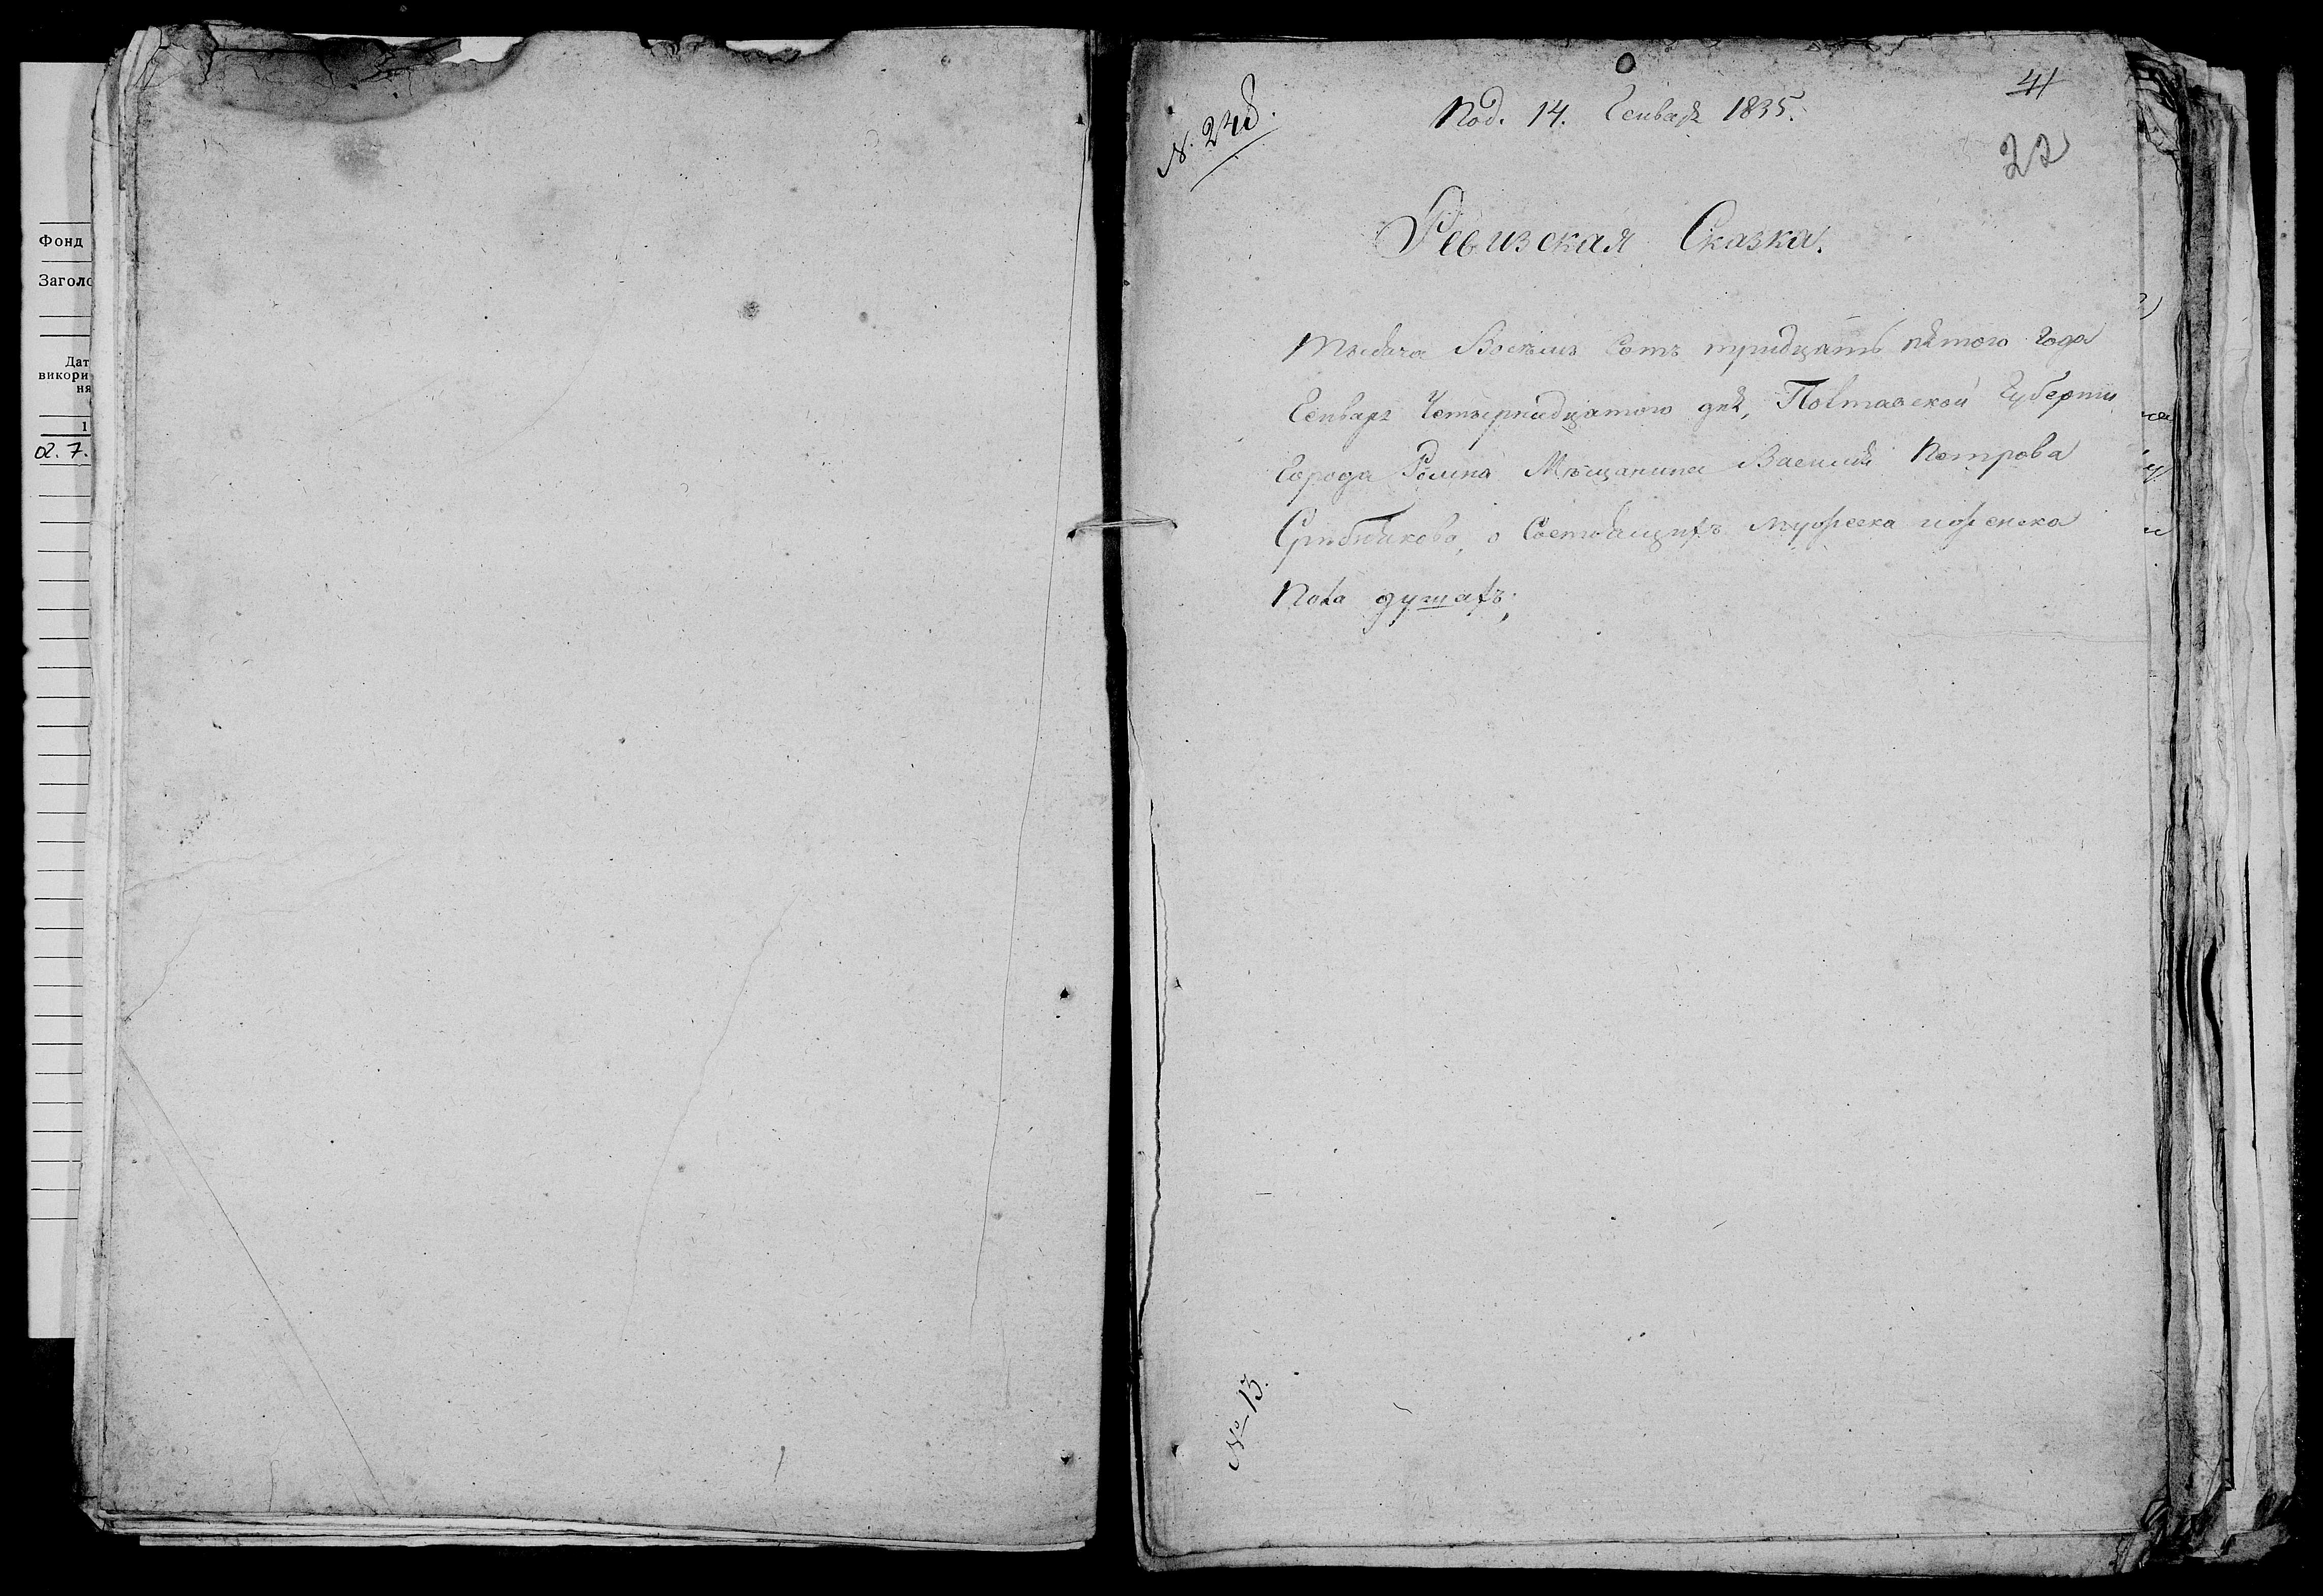 Фонд
Заголо
Дат
викори
ня
1
02. 7.
41
N. 248.
Под. 14. Генваря 1835.
22
Ревизская Сказка.
Тысяча Восемь Сотъ тридцать пятого года
Генваря Четырнадцатого дня, Полтавской Губерни
Города Ромна Мѣщанина Василия Петрова
о Состоящихъ мужеска иженска
Пола душахъ;
№ 13.